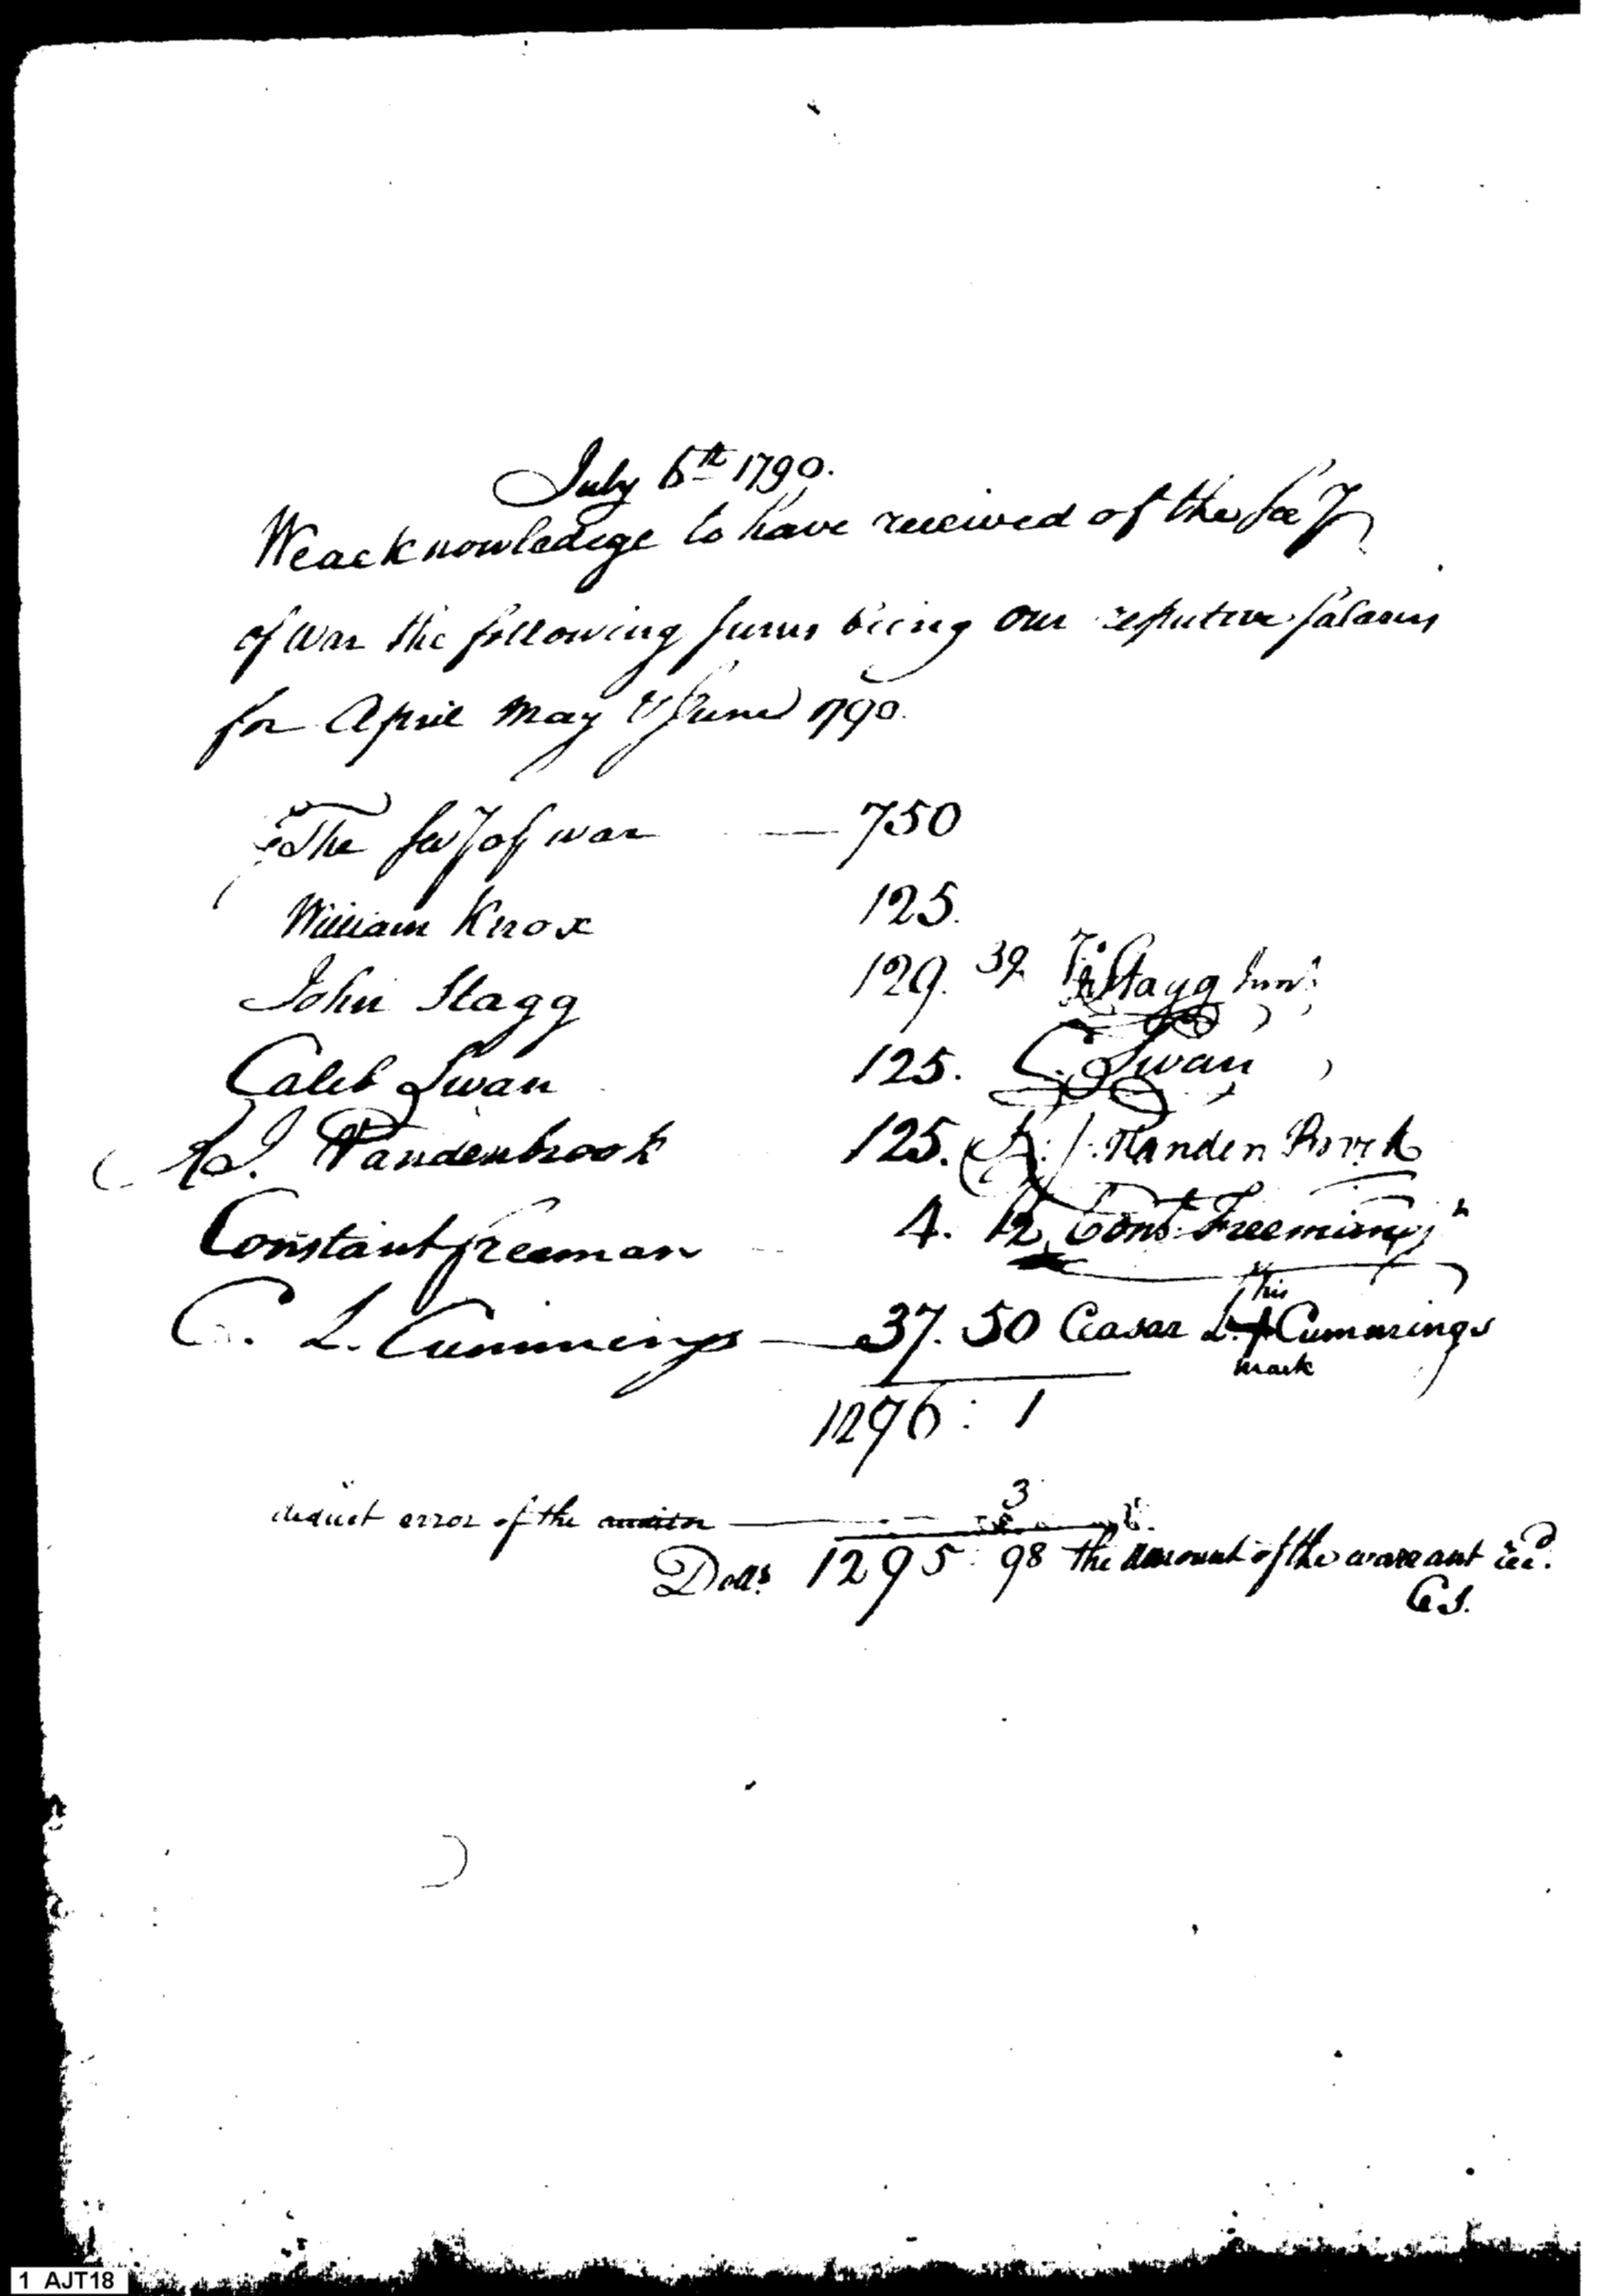 July 6th 1790.
We acknowledge to have received of the Secy
of war the following sums being our respective salaries
for April May & June 1790.
The Secy of war — 750
William Knox 125.
John Stagg 129. 39 Jn Stagg Junr
Caleb Swan 125. C. Swan
R J. Vandenbrook 125. R. J. Vanden Brock
Constant freeman 4. 12 Const Freeman jr
C. L. Cummings — 37. 50 Ceasar L. + Cummings
his
mark
1296 : 1
deduct error of the auditor — 3
Dolls 1295 : 98 the amount of the warrant recd.
C S.
1 AJT18